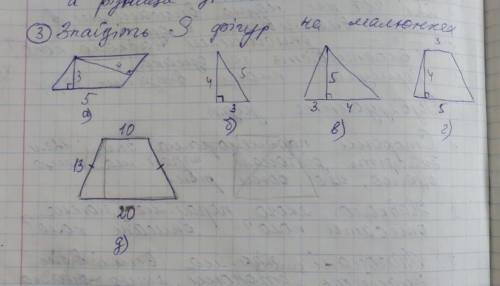 а різниця
③ Знайдіть S фігур на малюнках
3 4
5
а)
4 5
3
б)
5
3. 4
в)
3
4
5
г)
10
13
20
д)